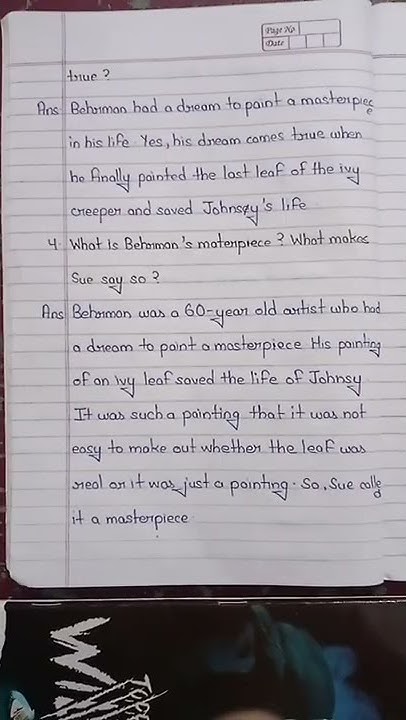 Page No
Date
true ?
Ans Behrman had a dream to paint a masterpiece
in his life Yes, his dream comes true when
he finally painted the last leaf of the ivy
creeper and saved Johnszy's life
4. What is Behrman's materpiece ? What makes
Sue say so ?
Ans Behrman was a 60-year old artist who had
a dream to paint a masterpiece His painting
of an ivy leaf saved the life of Johnsy
It was such a painting that it was not
easy to make out whether the leaf was
real or it was just a painting. So, Sue calleg
it a masterpiece